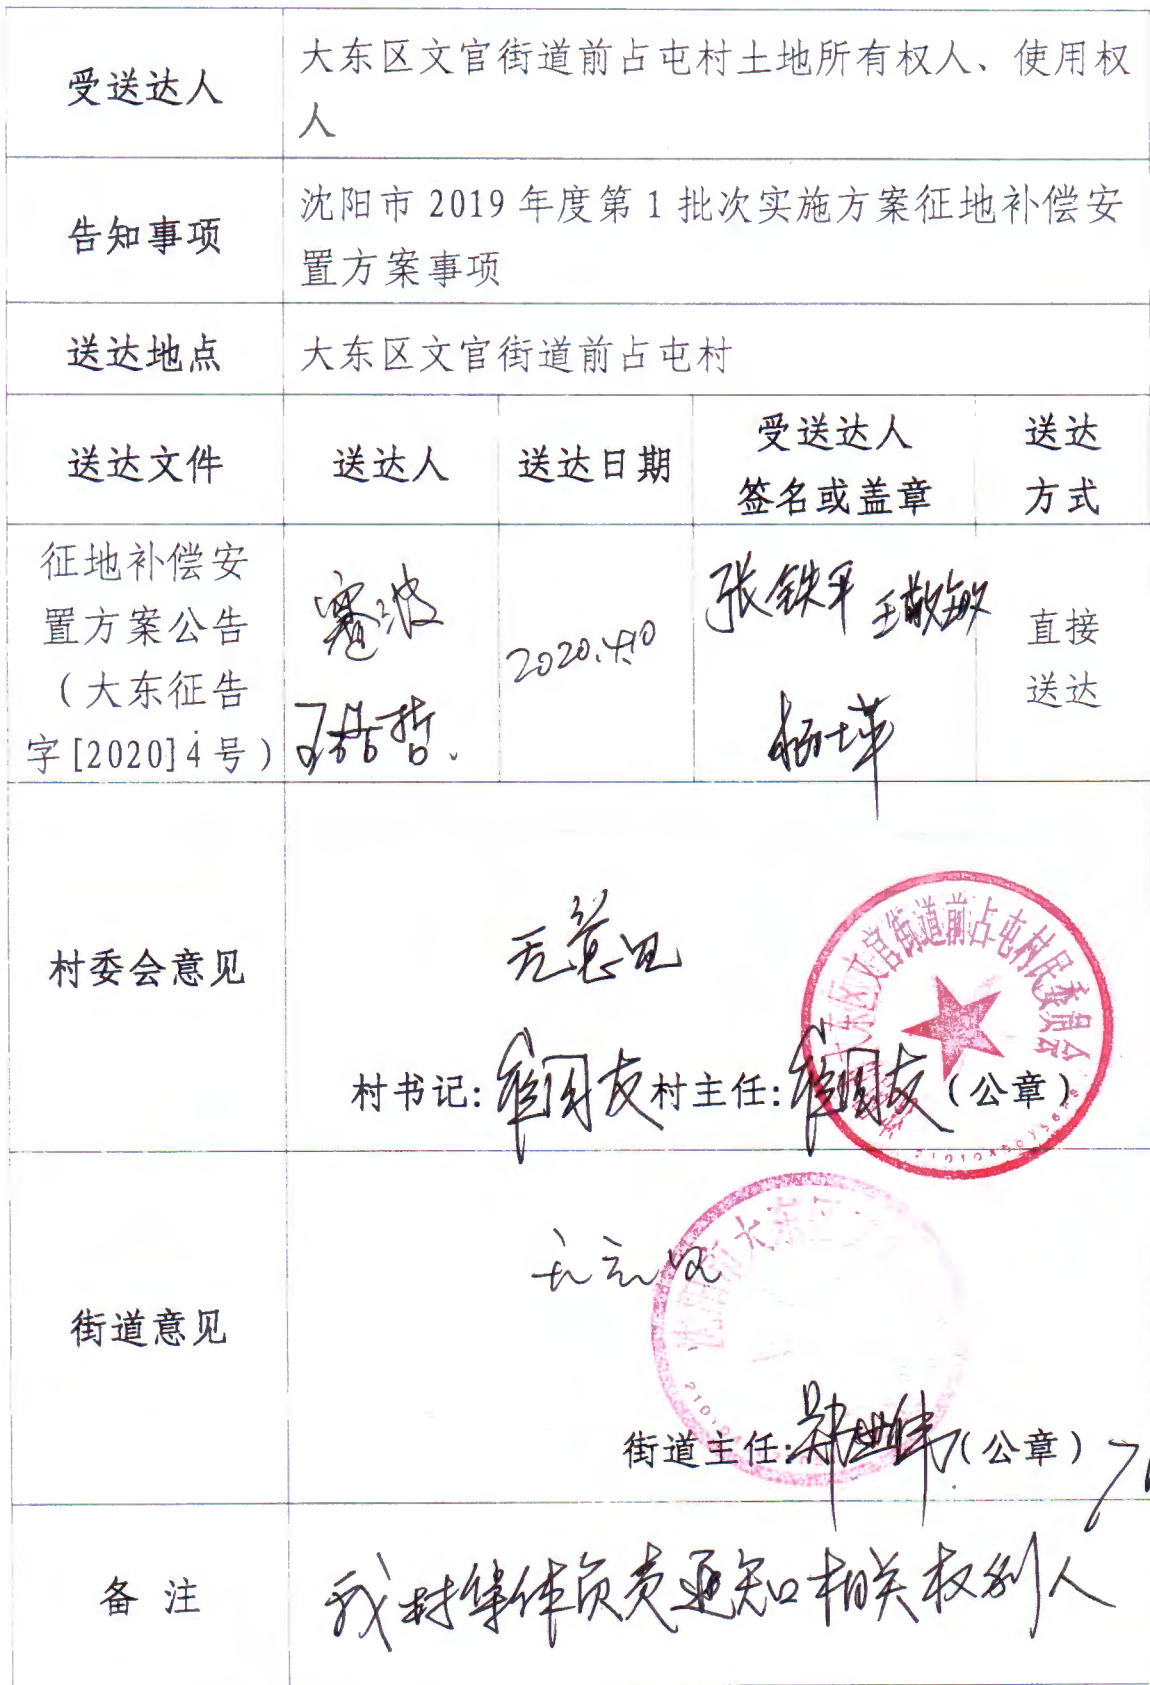 受送达人
大东区文官街道前占屯村土地所有权人、使用权
人
告知事项
沈阳市 2019 年度第 1 批次实施方案征地补偿安
置方案事项
送达地点
大东区文官街道前占屯村
送达文件
送达人
送达日期
受送达人
签名或盖章
送达
方式
征地补偿安
置方案公告
(大东征告
字[2020]4号)
2020.4.10
张铁军 王敬敏
杨士苹
直接
送达
村委会意见
无意见
大东区文官街道前占屯村民委员会
村书记:
村主任:
(公章)
街道意见
无意见
沈阳市大东区
街道主任:
(公章)
备 注
我村集体负责通知相关权利人